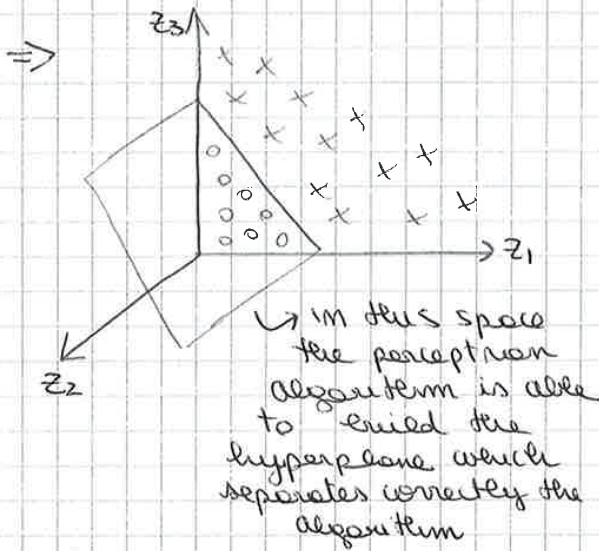 z3
⇒
z1
z2
↳ in this space
the perceptron
algorithm is able
to build the
hyperplane which
separates correctly the
algorithm